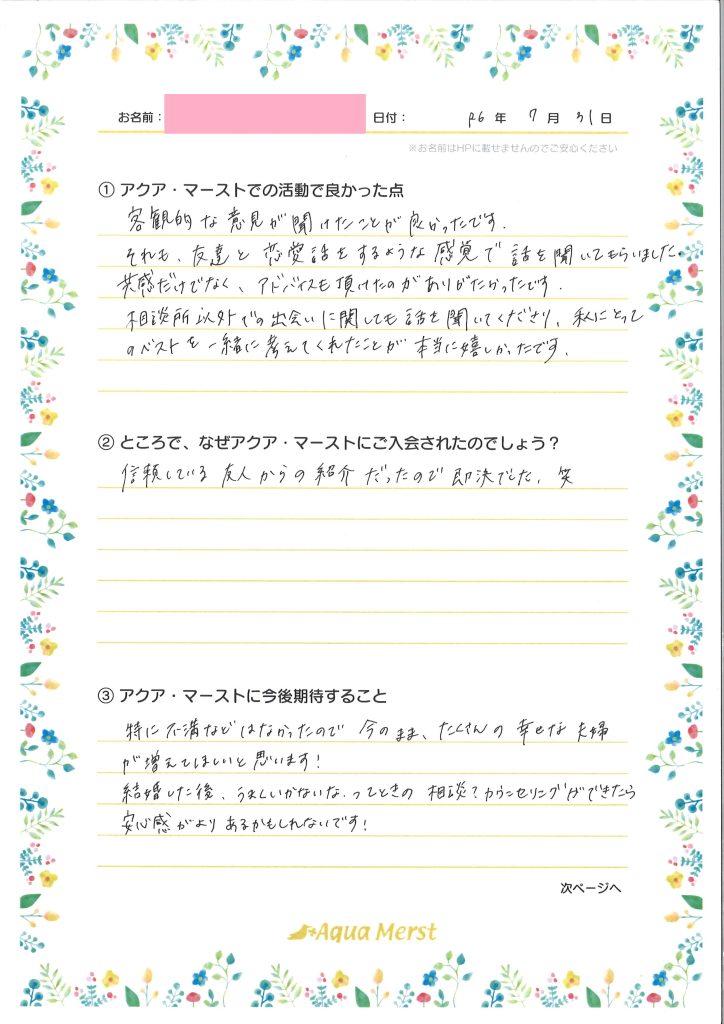 お名前： 日付： R6 年 7 月 31 日
※お名前はHPに載せませんのでご安心ください
① アクア・マーストでの活動で良かった点
客観的な意見が聞けたことが良かったです.
それも、友達と恋愛話をするような感覚で話を聞いてもらいました.
共感だけでなく、アドバイスも頂けたのがありがたかったです.
相談所以外での出会いに関しても話を聞いてくださり、私にとって
のベストを一緒に考えてくれたことが本当に嬉しかったです.
② ところで、なぜアクア・マーストにご入会されたのでしょう？
信頼している友人からの紹介だったので即決でした. 笑
③ アクア・マーストに今後期待すること
特に不満などはなかったので今のまま、たくさんの幸せな夫婦
が増えてほしいと思います!
結婚した後、うまくいかないな.ってときの相談？カウンセリング？ができたら
安心感がよりあるかもしれないです!
次ページへ
Aqua Merst